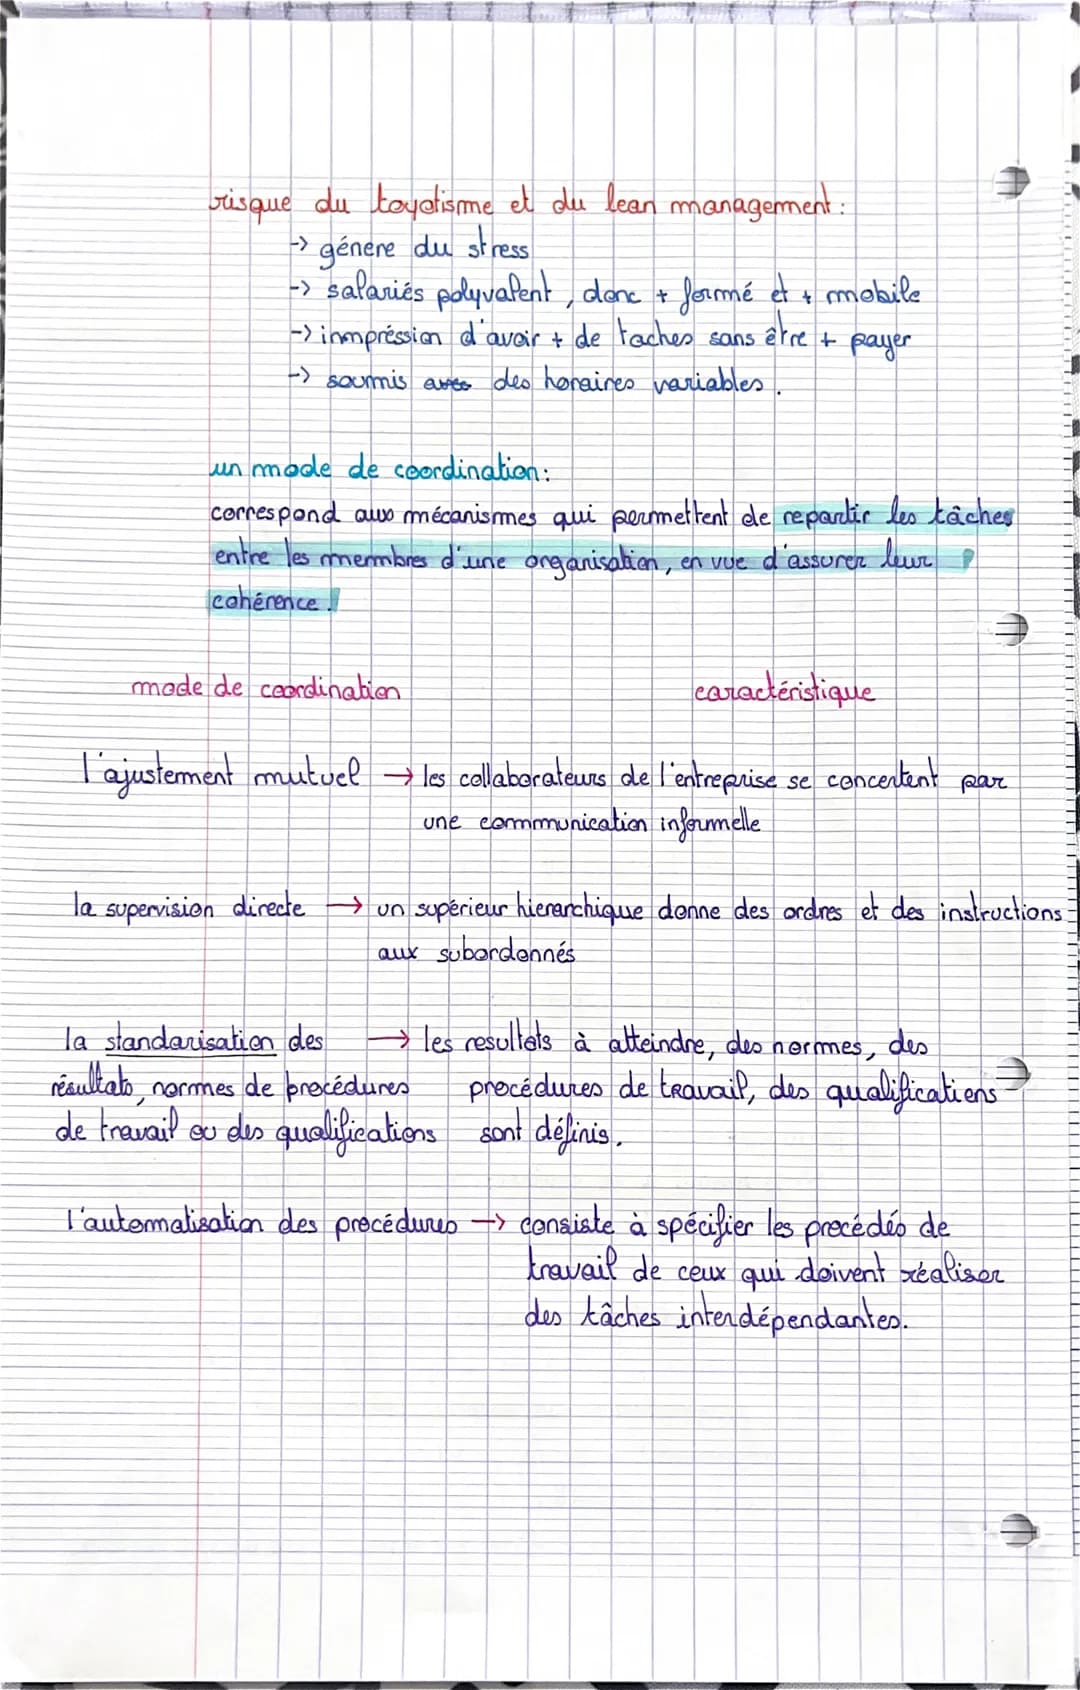 risque du toyotisme et du lean management :
-> génere du stress
-> salariés polyvalent, donc + formé et + mobile
-> inmpréssion d'avoir + de taches sans être + payer
-> soumis des horaires variables.
un mode de coordination :
correspond aux mécanismes qui permettent de repartir les tâches
entre les membres d'une organisation, en vue d'assurer leur
cohérence.
mode de coordination caractéristique
l'ajustement mutuel → les collaborateurs de l'entreprise se concertent par
une communication informelle
la supervision directe → un supérieur hierarchique donne des ordres et des instructions
aux subordonnés
la standarisation des → les resultats à atteindre, des normes, des
résultats, normes de procédures procédures de travail, des qualifications
de travail ou des qualifications sont définis.
l'automatisation des procédures → consiste à spécifier les procédés de
travail de ceux qui doivent réaliser
des tâches interdépendantes.